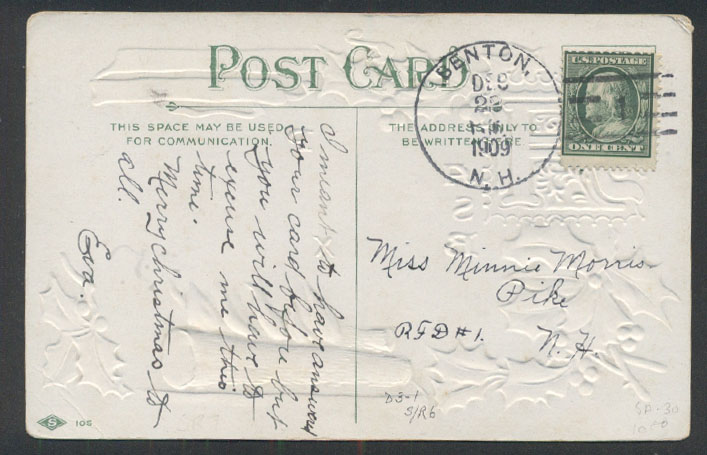 POST CARD
THIS SPACE MAY BE USED
FOR COMMUNICATION.
THE ADDRESS ONLY TO
BE WRITTEN HERE
BENTON,
DEC
1909
N.H.
U.S. POSTAGE
ONE CENT
I meant to have answered
your card before but
you will have to
excuse me this
time.
Merry Christmas to
all.
Eva.
Miss Minnie Morris
Pike
RFD #1.
N.H.
S
105
D3-1
S/R6